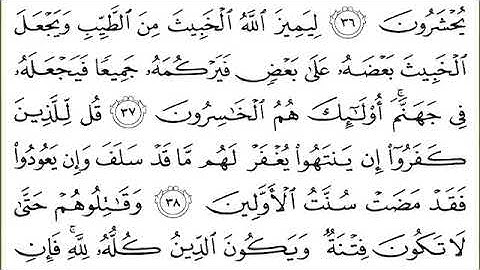 يُحۡشَرُونَ ٣٦ لِيَمِيزَ ٱللَّهُ ٱلۡخَبِيثَ مِنَ ٱلطَّيِّبِ وَيَجۡعَلَ
ٱلۡخَبِيثَ بَعۡضَهُۥ عَلَىٰ بَعۡضٖ فَيَرۡكُمَهُۥ جَمِيعٗا فَيَجۡعَلَهُۥ
فِي جَهَنَّمَۚ أُوْلَٰٓئِكَ هُمُ ٱلۡخَٰسِرُونَ ٣٧ قُل لِّلَّذِينَ
كَفَرُوٓاْ إِن يَنتَهُواْ يُغۡفَرۡ لَهُم مَّا قَدۡ سَلَفَ وَإِن يَعُودُواْ
فَقَدۡ مَضَتۡ سُنَّتُ ٱلۡأَوَّلِينَ ٣٨ وَقَٰتِلُوهُمۡ حَتَّىٰ
لَا تَكُونَ فِتۡنَةٞ وَيَكُونَ ٱلدِّينُ كُلُّهُۥ لِلَّهِۚ فَإِنِ